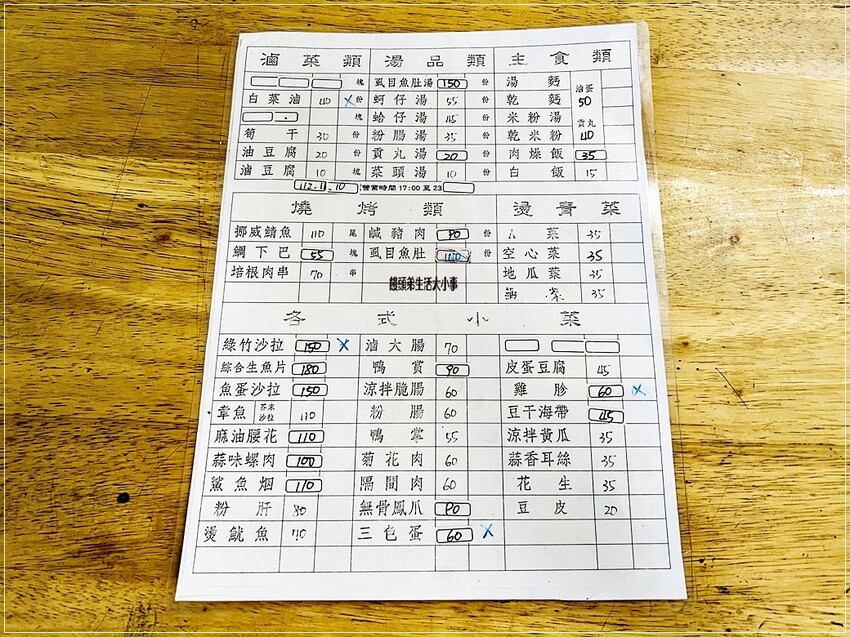 滷菜類 湯品類 主食類
塊 虱目魚肚湯 150 份 湯麵 滷蛋
白菜滷 40 X 份 蚵仔湯 55 份 乾麵 50
塊 蛤仔湯 45 份 米粉湯 貢丸
筍干 30 份 粉腸湯 35 份 乾米粉 40
油豆腐 20 份 貢丸湯 20 份 肉燥飯 35
滷豆腐 10 塊 菜頭湯 10 份 白飯 15
112.11.10 營業時間17:00至23
燒烤類 燙青菜
挪威鯖魚 110 尾 鹹豬肉 90 份 A菜 35
鯛下巴 55 塊 虱目魚肚 份 空心菜 35
培根肉串 70 串 地瓜菜 35
饅頭弟生活大小事
菜 35
各式小菜
綠竹沙拉 150 X 滷大腸 70
綜合生魚片 180 鴨賞 90 皮蛋豆腐 45
魚蛋沙拉 150 涼拌脆腸 60 雞胗 60 X
章魚 芥末 沙拉 110 粉腸 60 豆干海帶 45
麻油腰花 110 鴨掌 55 涼拌黃瓜 35
蒜味螺肉 100 菊花肉 60 蒜香耳絲 35
鯊魚烟 110 隔間肉 60 花生 35
粉肝 無骨鳳爪 90 豆皮 20
燙魷魚 三色蛋 60 X